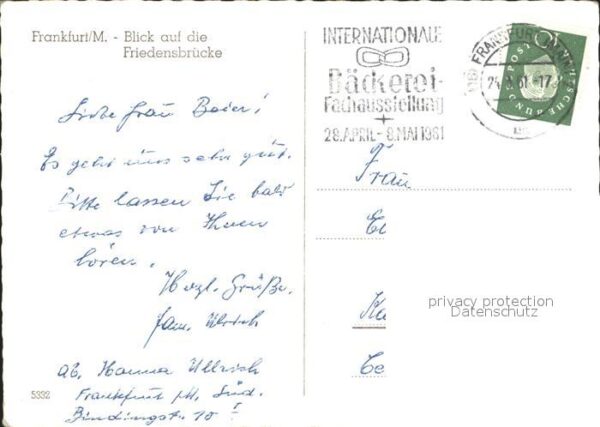 Frankfurt/M. - Blick auf die
Friedensbrücke
INTERNATIONALE
Bäckerei-
Fachausstellung
28. APRIL - 8. MAI 1961
FRANKFURT (MAIN)
61.-17
DEUTSCHE BUNDESPOST
10
Liebe Frau Baier!
Es geht uns sehr gut.
Bitte lassen Sie bald
etwas von Ihnen
hören.
Herzl. Grüße.
Fam. Ullrich
ab. Hanna Ullrich
Frankfurt /M. Süd.
Bindingstr. 10
5332
Frau
El
Ka
Ce
privacy protection
Datenschutz